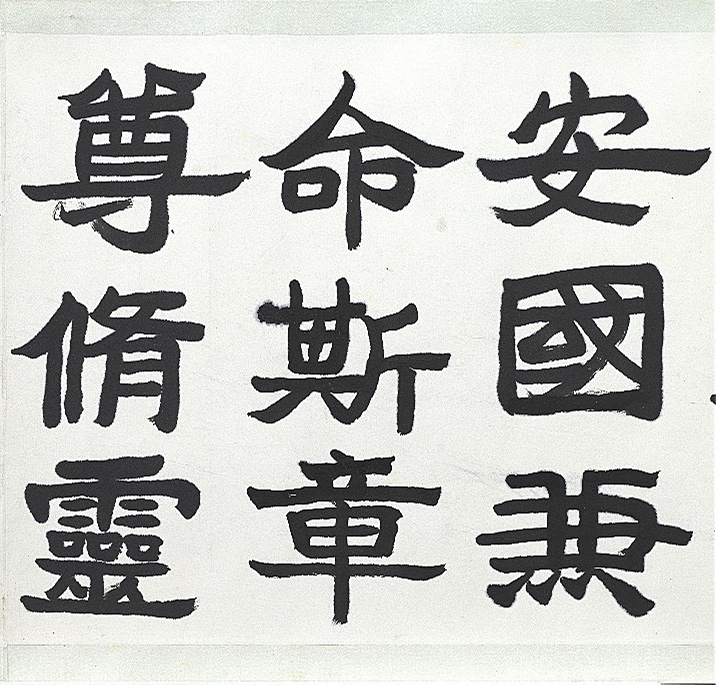 安國兼
命斯章
尊脩靈